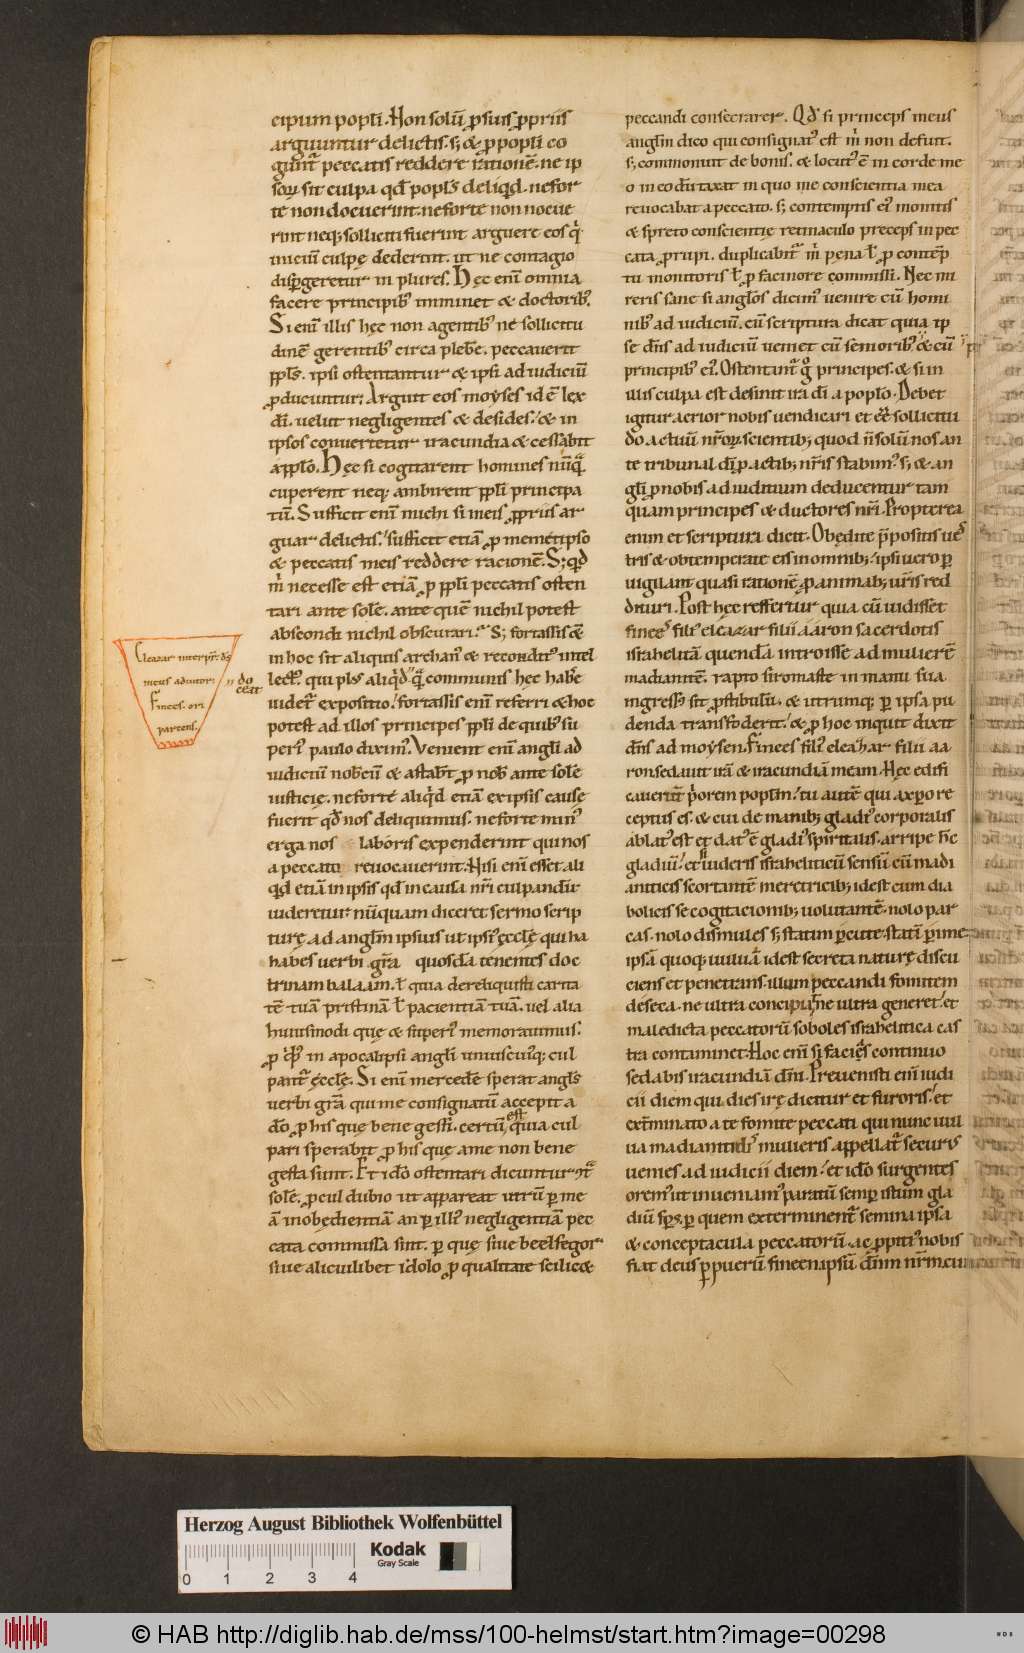 cipum popłi. Non solũ ꝓ suis ꝓpriis
arguuntur delictis. s; & ꝓ popłi co
gunt᷑ peccatis reddere rationẽ. ne ip
soꝝ sit culpa qđ popłs deliq̇d. nefor
te non docuerint. neforte non monue
rint neq; solliciti fuerint arguere eos q̇
inicium culpę dederint. ut ne contagio
dispgeretur in plures. Hęc enĩ omnia
facere principib; imminet & doctorib;.
Si enĩ illis hęc non agentib; ne sollicitu
dinẽ gerentib; circa plebẽ. peccauerit
ppłs. ipsi ostentantur & ipsi ad iudiciũ
ꝓducuntur; Arguit eos moyses id ẽ lex
dĩ. uelut negligentes & desides. & in
ipsos conuertetur iracundia & cessabit
a pplo. Hęc si cogitarent homines nũq̃
cuperent neq; ambirent ppłi principa
tũ. Sufficit enĩ michi si meis ꝓpriis ar
guar delictis. sufficit etiã ꝓ memetipso
& peccatis meis reddere racionẽ. S; quid
m̃ necesse est etiã ꝓ ppłi peccatis osten
tari ante solẽ. ante quẽ nichil potest
abscondi nichil obscurari. S; fortassis &
in hoc sit aliquis archan; & recondit; intel
lect;. qui pl; aliq̇d q̃ communis hęc habẽ
uidet᷑ expositio. fortassis enĩ referri & hoc
potest ad illos principes ppłi de quib; su
peri; paulo dixim;. Venient enĩ angłi ad
iudiciũ nobcũ & astabt̃ ꝓ nob ante solẽ
iusticię. neforte aliq̇d etiã ex ipsis causę
fuerit qđ nos deliquimus. neforte min;
erga nos laboris expenderint qui nos
a peccato reuocauerint. Nisi enĩ esset ali
q̇d etiã in ipsis qđ in causa nr̃i culpandũ
uideretur nũquam diceret sermo scrip
turę ad angłm ipsius ut ipsi; ęcclę. qui ha
habes uerbi gr̃a quosda tenentes doc
trinam balaam. ł quia dereliquisti carita
tẽ tuã pristinam ł pacientiã tuã. uel alia
huiusmodi quę & superi; memorauimus.
ꝓ q̇b; in apocalipsi angłi uniuscuiq; cul
pant᷑ ęcclę. Si enĩ mercedẽ sperat angłs
uerbi gr̃a qui me consignatũ accepit a
đo ꝓ his quę bene gessi. certũ est quia cul
pari sperabit ꝓ his quę a me non bene
gesta sunt. Et ido ostentari dicuntur cont̃
solẽ. ꝓcul dubio ut appareat utrũ ꝑ me
ã inobędientiã an ꝑ illi; negligentiã pec
cata commissa sint. ꝑ quę siue beelfegor
siue alicuilibet idolo ꝓ qualitate scilic&
Eleazar interp̃t. d̃s
meus adiutor.
Finees. ori
parcens.
do
ceat
peccandi consecrarer. Qđ si princeps meus
angłm dico qui consignat; est m̃ non defuit.
s; commonuit de bonis. & locut; ẽ in corde me
o in eo dũtaxat in quo me conscientia mea
reuocabat a peccato. s; contemptis ei; monitis
& spreto conscientię retinaculo preceps in pec
cata ꝓrupi. duplicabit᷑ m̃ pena ł ꝓ contẽp
tu monitoris ł ꝓ facinore commissi. Nec mi
reris sane si angłos dicim; uenire cũ homi
nib; ad iudiciũ. cũ scriptura dicat quia ip
se dñs ad iudiciũ ueniet cum senorib; & cũ
principib; ei;. Ostentunt᷑ g̊ principes. & si in
illis culpa est desinit ira dĩ a poplo. Debet
igitur acrior nobis uendicari et ẽẽ sollicitu
do actuũ nr̃oꝝ. scientib; quod ñ solũ nos an
te tribunal dĩ ꝓ actib; nr̃is stabim;. s; & an
głi ꝓ nobis ad iuditium deducentur tam
quam principes & ductores nr̃i. Propterea
enim et scriptura dicit. Obędite p̃positis ues
tris & obtemperate eis in omnib;. ipsi uero ꝑ
uigilant quasi rationẽ ꝓ animab; uris red
dituri. Post hęc reffertur quia cũ uidisset
finees fili; eleazar filii aaron sacerdotis
israhelitã quendã introisse ad mulierẽ
madianitẽ. rapto siromaste in manu sua
ingress; sit ꝓstibulũ. & utrumq; ꝑ ipsa pu
denda transfoderit. & ꝓ hoc inquit dixit
dñs ad moysen. Finees fili; eleazar filii aa
ron sedauit irã & iracundiã meam. Hęc edifi
cauerũt p̃orem poplm. tu autẽ qui a xp̃o re
ceptus es. & cui de manib; gladi; corporalis
ablat; est et dat; ẽ gladi; spiritalis. arripe hc̃
gladiũ. et si uideris israheliticũ sensũ cũ madi
aniticis scortantẽ meretricib; id est cum dia
bolicis se cogitacionib; uolutantẽ. nolo par
cas. nolo dismules s; statim ꝑcute statĩ ꝑime
ipsã quoq; uuluã id est secreta naturę discu
ciens et penetrans. illum peccandi fomitem
deseca. ne ultra concipiat ne ultra generet. et
maledicta peccatorũ soboles israhelitica cas
tra contaminet. Hoc enĩ si facies continuo
sedabis iracundiã dñi. Preuenisti enĩ iudi
cii diem qui dies irę dicitur et furoris. et
ext̃minato a te fomite peccati qui nunc uul
ua madianitidis mulieris appellat᷑ securus
uenies ad iudicii diem. et ido surgentes
orem; ut inueniam; paratũ semp istum gla
diũ sp̃s. ꝑ quem exterminent᷑ semina ipsa
& conceptacula peccatorũ. ac ꝓpiti; nobis
fiat deus ꝑ puerũ fineen ipsũ dñm nr̃m. cui
Herzog August Bibliothek Wolfenbüttel
Kodak
Gray Scale
0 1 2 3 4
© HAB http://diglib.hab.de/mss/100-helmst/start.htm?image=00298